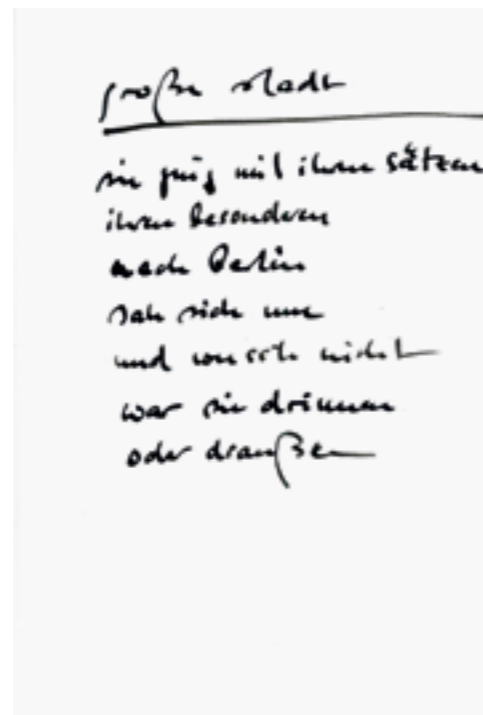 große stadt
sie ging mit ihren sätzen
ihren besonderen
nach berlin
sah sich um
und wusste nicht
war sie drinnen
oder draußen